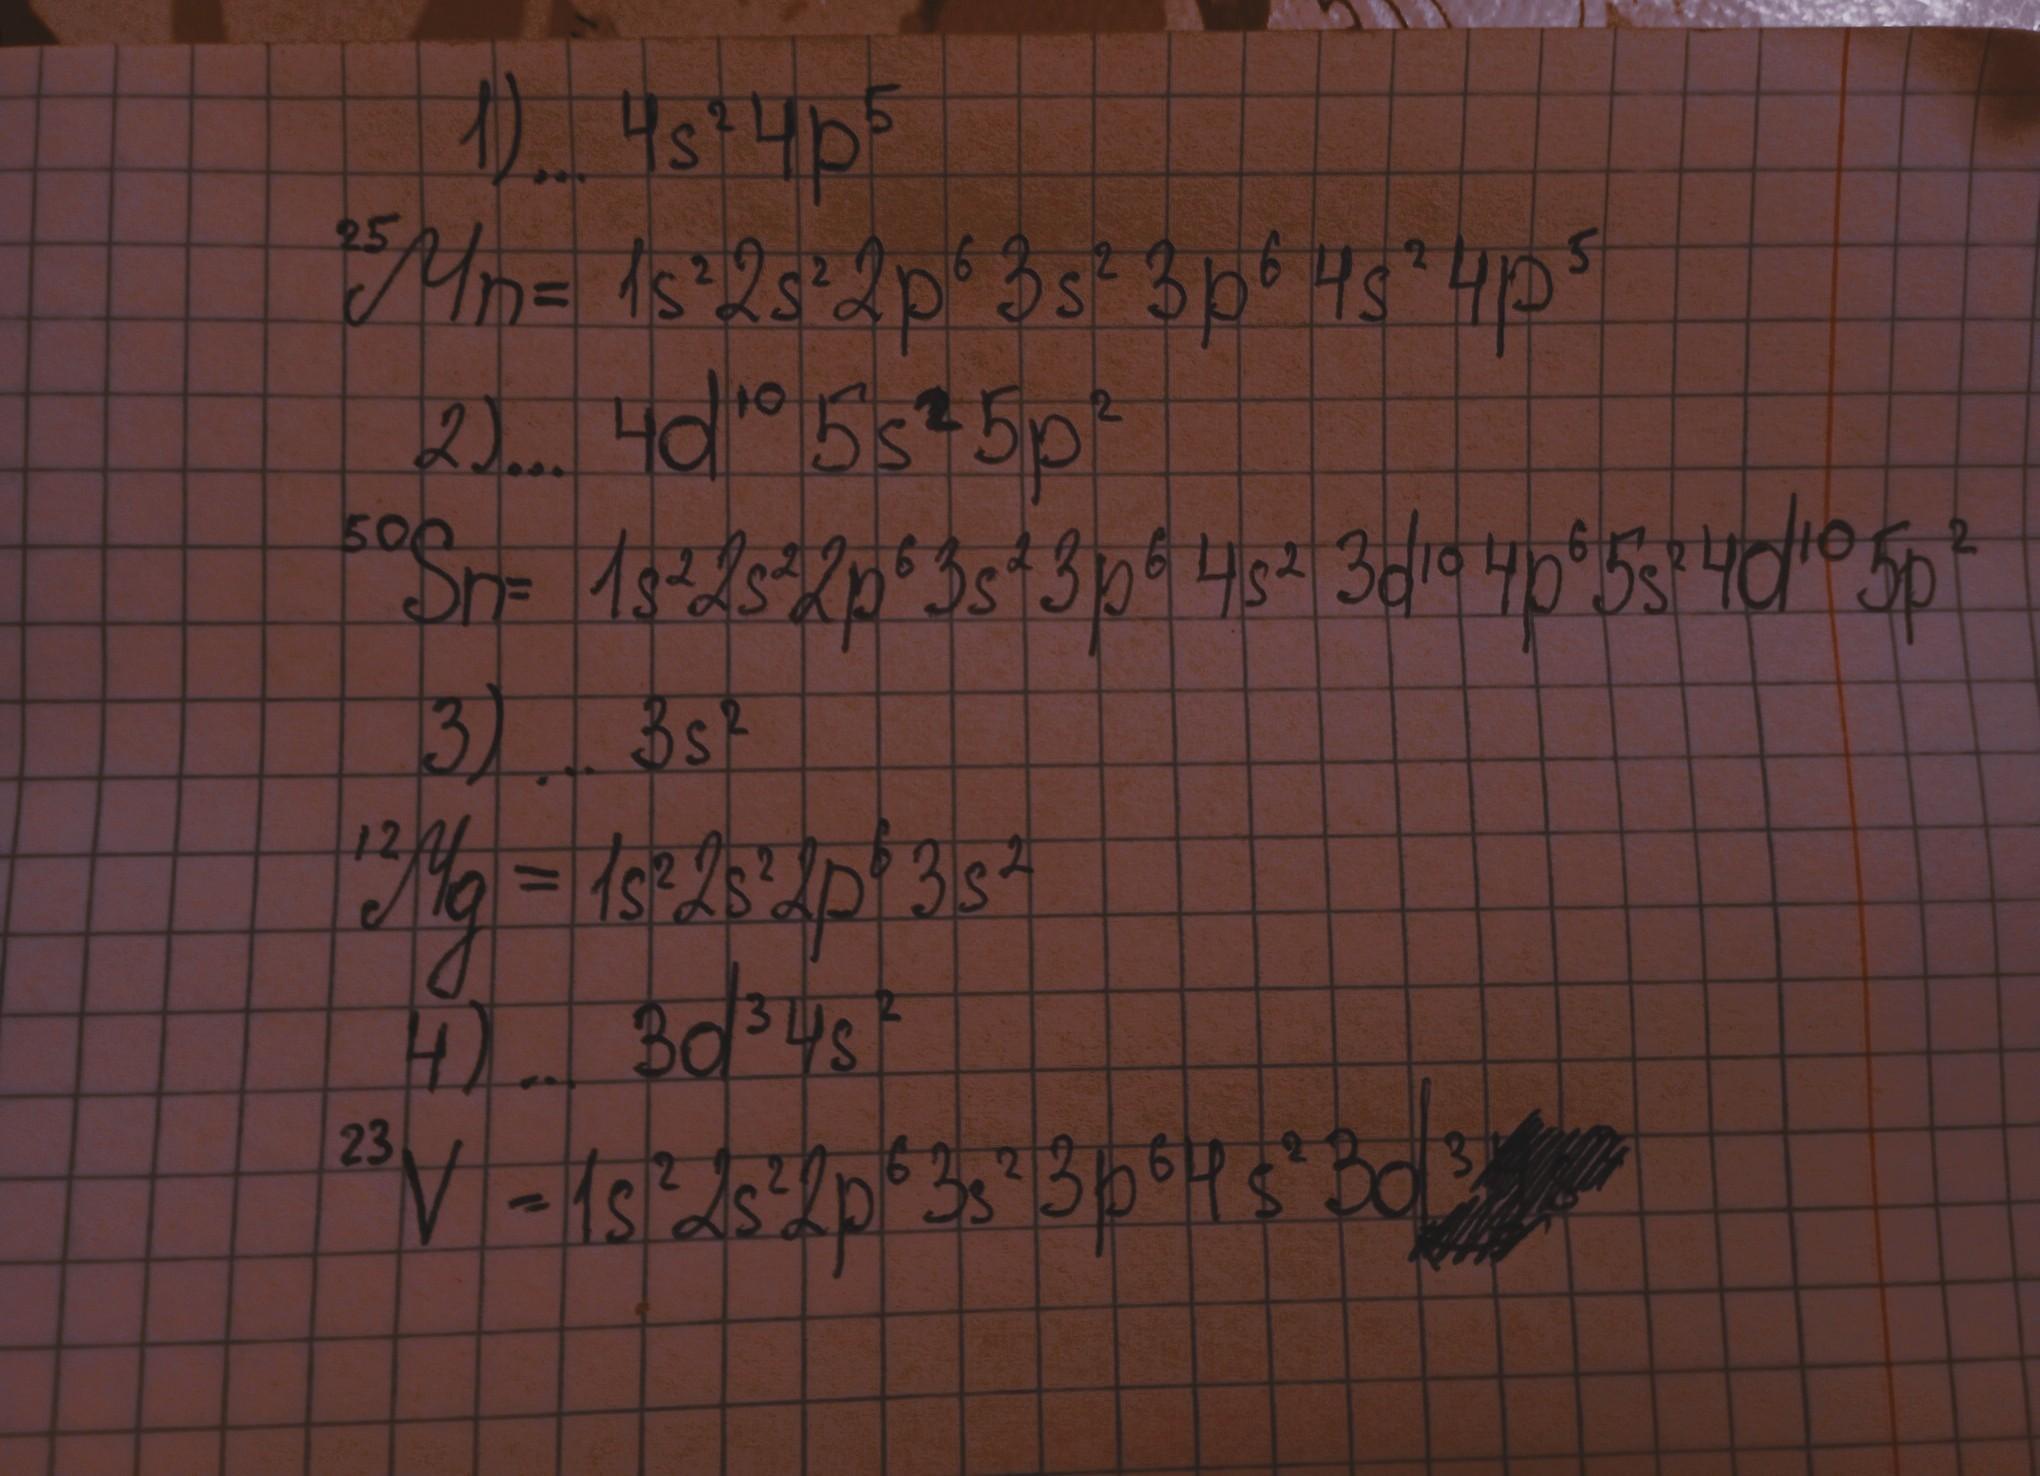 1)... 4s²4p⁵
²⁵Mn= 1s²2s²2p⁶3s²3p⁶4s²4p⁵
2)... 4d¹⁰5s²5p²
⁵⁰Sn= 1s²2s²2p⁶3s²3p⁶4s²3d¹⁰4p⁶5s²4d¹⁰5p²
3)... 3s²
¹²Mg = 1s²2s²2p⁶3s²
4)... 3d³4s²
²³V = 1s²2s²2p⁶3s²3p⁶4s²3d³